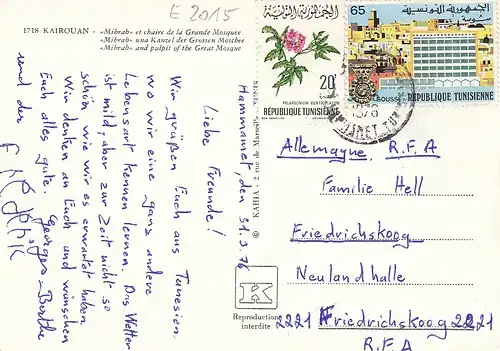 E 2015
1718 KAIROUAN - «Mihrab» et chaire de la Grande Mosquee
«Mihrab» una Kanzel der Grossen Moschee
«Mihrab» and pulpit of the Great Mosque
Hammamet, den 31.3.76
Liebe Freunde!
Wir grüßen Euch aus Tunesien.
wo wir eine ganz andere
Lebensart kennen lernen. Das Wetter
ist mild, aber zur Zeit nicht so
schön wie wir es erwartet haben.
Wir denken an Euch und wünschen
Euch alles gute. Georges - Berthe
und der
© KAHIA - 2 rue de Marseille
K
Reproduction
interdite
الجمهورية التونسية
20
PELARGONIUM
REPUBLIQUE TUNISIENNE
65
الجمهورية التونسية
سوسة
SOUSSE
REPUBLIQUE TUNISIENNE
1976
Allemagne R.F.A
Familie Hell
Friedrichskoog
Neulandhalle
2221 Friedrichskoog 2221
R.F.A